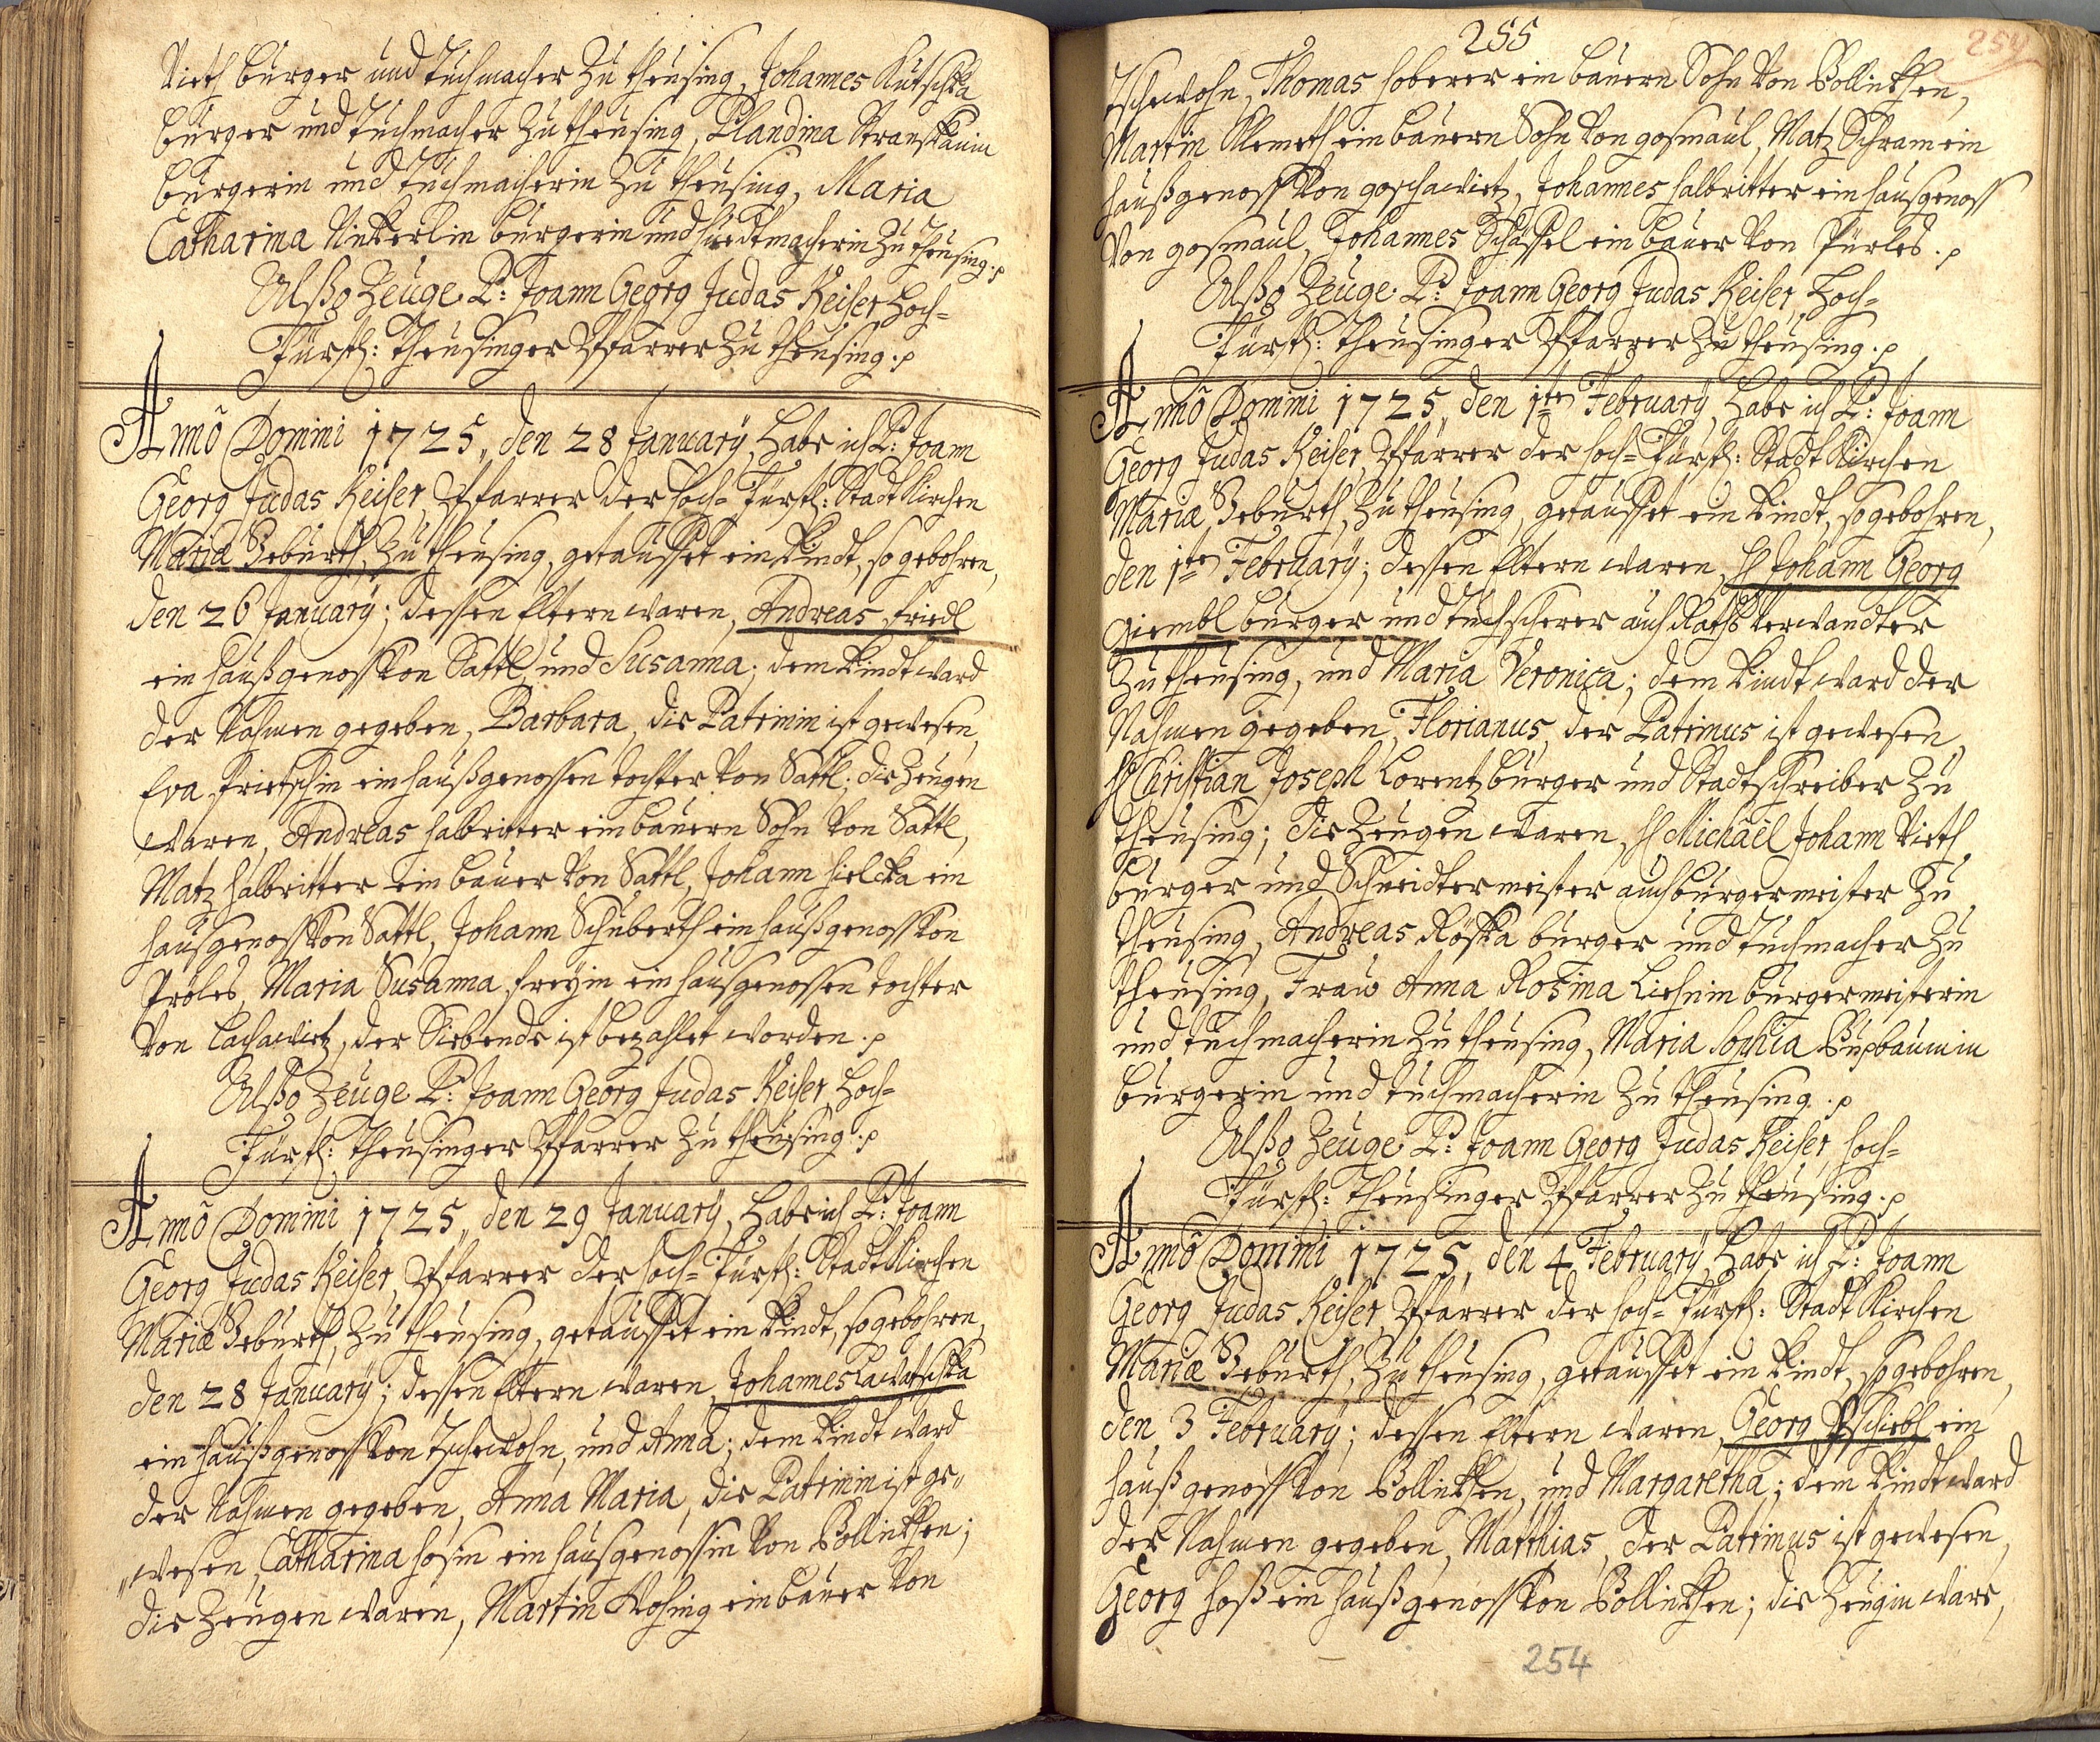 Vieth burger und Tuchmacher zu theusing, Johannes Kutschka
burger und Tuchmacher zu theusing, Blandina Stranskauin
burgerin und Tuchmacherin zu theusing, Maria
Catharina Vinkerlin burgerin und Huedtmacherin zu theusing.
Alßo Zeuge P: Joann Georg Judas Keiser Hoch-
Fürstl: Theusinger Pfarrer zu theusing.
Annô Domini 1725,, den 28 January, Habe ich P: Joann
Georg Judas Keiser, Pfarrer der Hoch-Fürstl: Stadt Kirchen
Mariæ Geburth, zu theusing, getauffet ein Kindt, so gebohren,
den 26 January; dessen Eltern waren, Andreas Friedl
ein haußgenoss von Sattl, und Susanna; dem Kindt ward
der Nahmen gegeben, Barbara, die Patrinin ist gewesen,
Eva Frietschin ein haußgenossen tochter von Sattl; die Zeugen
waren, Andreas halbritter ein bauern Sohn von Sattl,
Matz halbritter ein bauer von Sattl, Johann hielcka ein
haußgenoss von Sattl, Johann Schuberth ein haußgenoss von
Pröles, Maria Susanna Freÿin ein haußgenossen tochter
von Lachawietz, der Siebende ist bezahlet worden.
Alßo Zeuge P: Joann Georg Judas Keiser, Hoch-
Fürstl: Theusinger Pfarrer zu theusing.
Annô Domini 1725,, den 29 January, Habe ich P: Joann
Georg Judas Keiser, Pfarrer der Hoch-Fürstl: Stadt Kirchen
Mariæ Geburth, zu theusing, getauffet ein Kindt, so gebohren,
den 28 January; dessen Eltern waren, Johannes Lawatschka
ein haußgenoss von Tschewohn, und Anna; dem Kindt ward
der Nahmen gegeben, Anna Maria, die Patrinin ist ge,,
,,wesen, Catharina hosin ein haußgenossin von Pollinkhen;
die Zeugen waren, Martin Wohsing ein bauer von
255
254
Tschewohn, Thomas hoberer ein bauern Sohn von Pollinkhen,
Martin Klemeth ein bauern Sohn von gosmaul, Matz Schram ein
haußgenoss von goschawietz, Johannes halbritter ein haußgenoss
von gosmaul, Johannes Schässel ein bauer von Pürles.
Alßo Zeuge P: Joann Georg Judas Keiser, Hoch-
Fürstl: Theusinger Pfarrer zu theusing.
Annô Domini 1725,, den 1ten February, Habe ich P: Joann
Georg Judas Keiser, Pfarrer der Hoch-Fürstl: Stadt Kirchen
Mariæ Geburth, zu theusing, getauffet ein Kindt, so gebohren,
den 1ten February; dessen Eltern waren, H Johann Georg
Giembl burger und tuchscherer auch Raths Verwandter
zu theusing, und Maria Veronica; dem Kindt ward der
Nahmen gegeben, Florianus, der Patrinus ist gewesen,
H Christian Joseph Lorentz burger und Stadtschreiber zu
theusing; die Zeugen waren, H Michaël Johann Vieth
burger und Schneidtermeister auch burgermeister zu
theusing, Andreas Roska burger und Tuchmacher zu
theusing, Fraw Anna Rosina Liehnin burgermeisterin
und tuchmacherin zu theusing, Maria Sophia Pusbauin in
burgerin und tuchmacherin zu theusing.
Alßo Zeuge P: Joann Georg Judas Keiser, Hoch-
Fürstl: Theusinger Pfarrer zu theusing.
Annô Domini 1725, den 4 February, Habe ich P: Joann
Georg Judas Keiser, Pfarrer der Hoch-Fürstl: Stadt Kirchen
Mariæ Geburth, zu theusing, getauffet ein Kindt, so gebohren,
den 3 February; dessen Eltern waren, Georg Pschiebl ein
haußgenoss von Pollinkhen, und Margaretha; dem Kindt ward
der Nahmen gegeben, Matthias, der Patrinus ist gewesen,
Georg hoß ein haußgenoss von Pollinkhen; die Zeugin wäre,
254